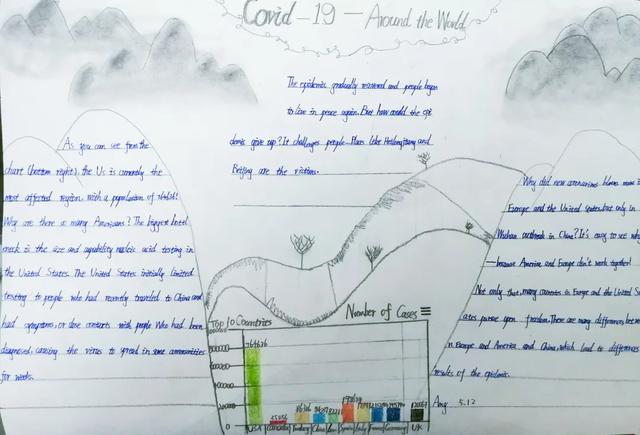 Covid-19 — Around the World
The epidemic gradually recovered and people began
to live in peace again. But how could the epi
demic give up? It challenges people. Places like Heilongjiang and
Beijing are the victims.
As you can see from the
chart (bottom right), the US is currently the
most affected region, with a population of
Why are there so many Americans? The biggest bottl
eneck is the size and capability nucleic acid testing in
the United States. The United States initially limited
testing to people who had recently traveled to China and
had symptoms, or close contacts with people who had been
diagnosed, causing the virus to spread in some communities
for weeks.
Why did new coronavirus bloom more in
Europe and the United states, but only in
Wuhan outbreak in China? It's easy to see why
because America and Europe don't work together!
Not only that, many countries in Europe and the United St
ates pursue upon freedom. There are many differences betwee
n Europe and America and China, which lead to differences
results of the epidemic.
Amy 5.12
Top 10 Countries
Number of Cases
800000
600000
400000
200000
0
764636
USA
Canada
Turkey
China
Iran
Spain
Italy
France
Germany
UK